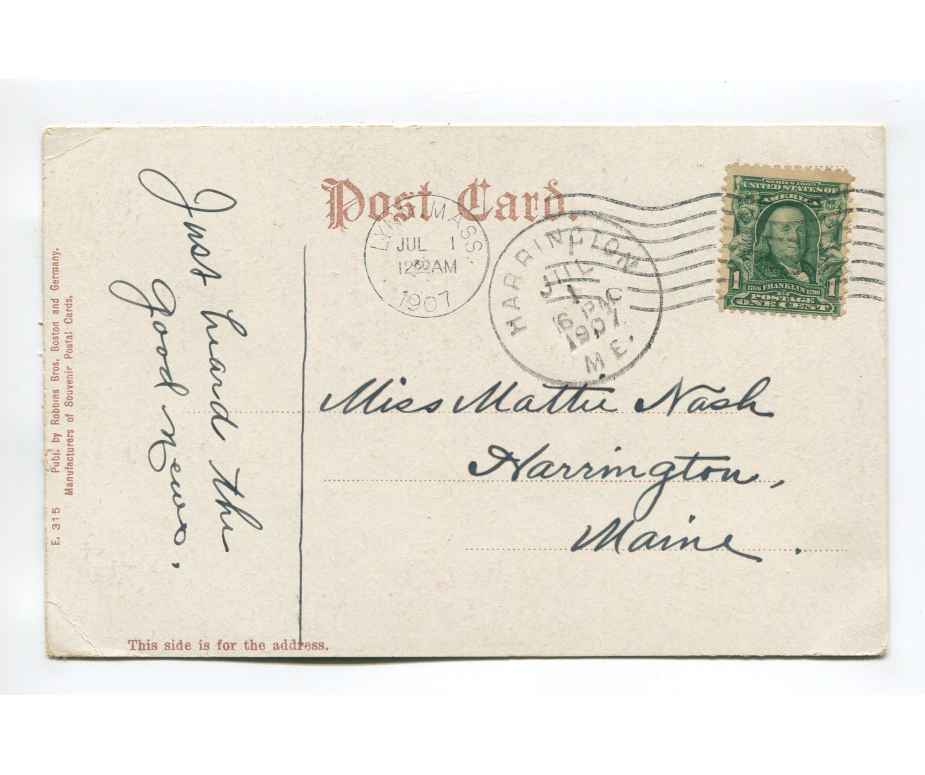 Post Card.
LYNN, MASS.
JUL 1
12 AM
1907
HARRINGTON
JUL
1
6 PM
1907
M.E.
SERIES 1902
UNITED STATES OF
AMERICA
1 1706 FRANKLIN 1790 1
POSTAGE
ONE CENT
Just heard the
good news.
Miss Mattie Nash
Harrington,
Maine.
E. 315 Publ. by Robbins Bros. Boston and Germany.
Manufacturers of Souvenir Postal Cards.
This side is for the address.